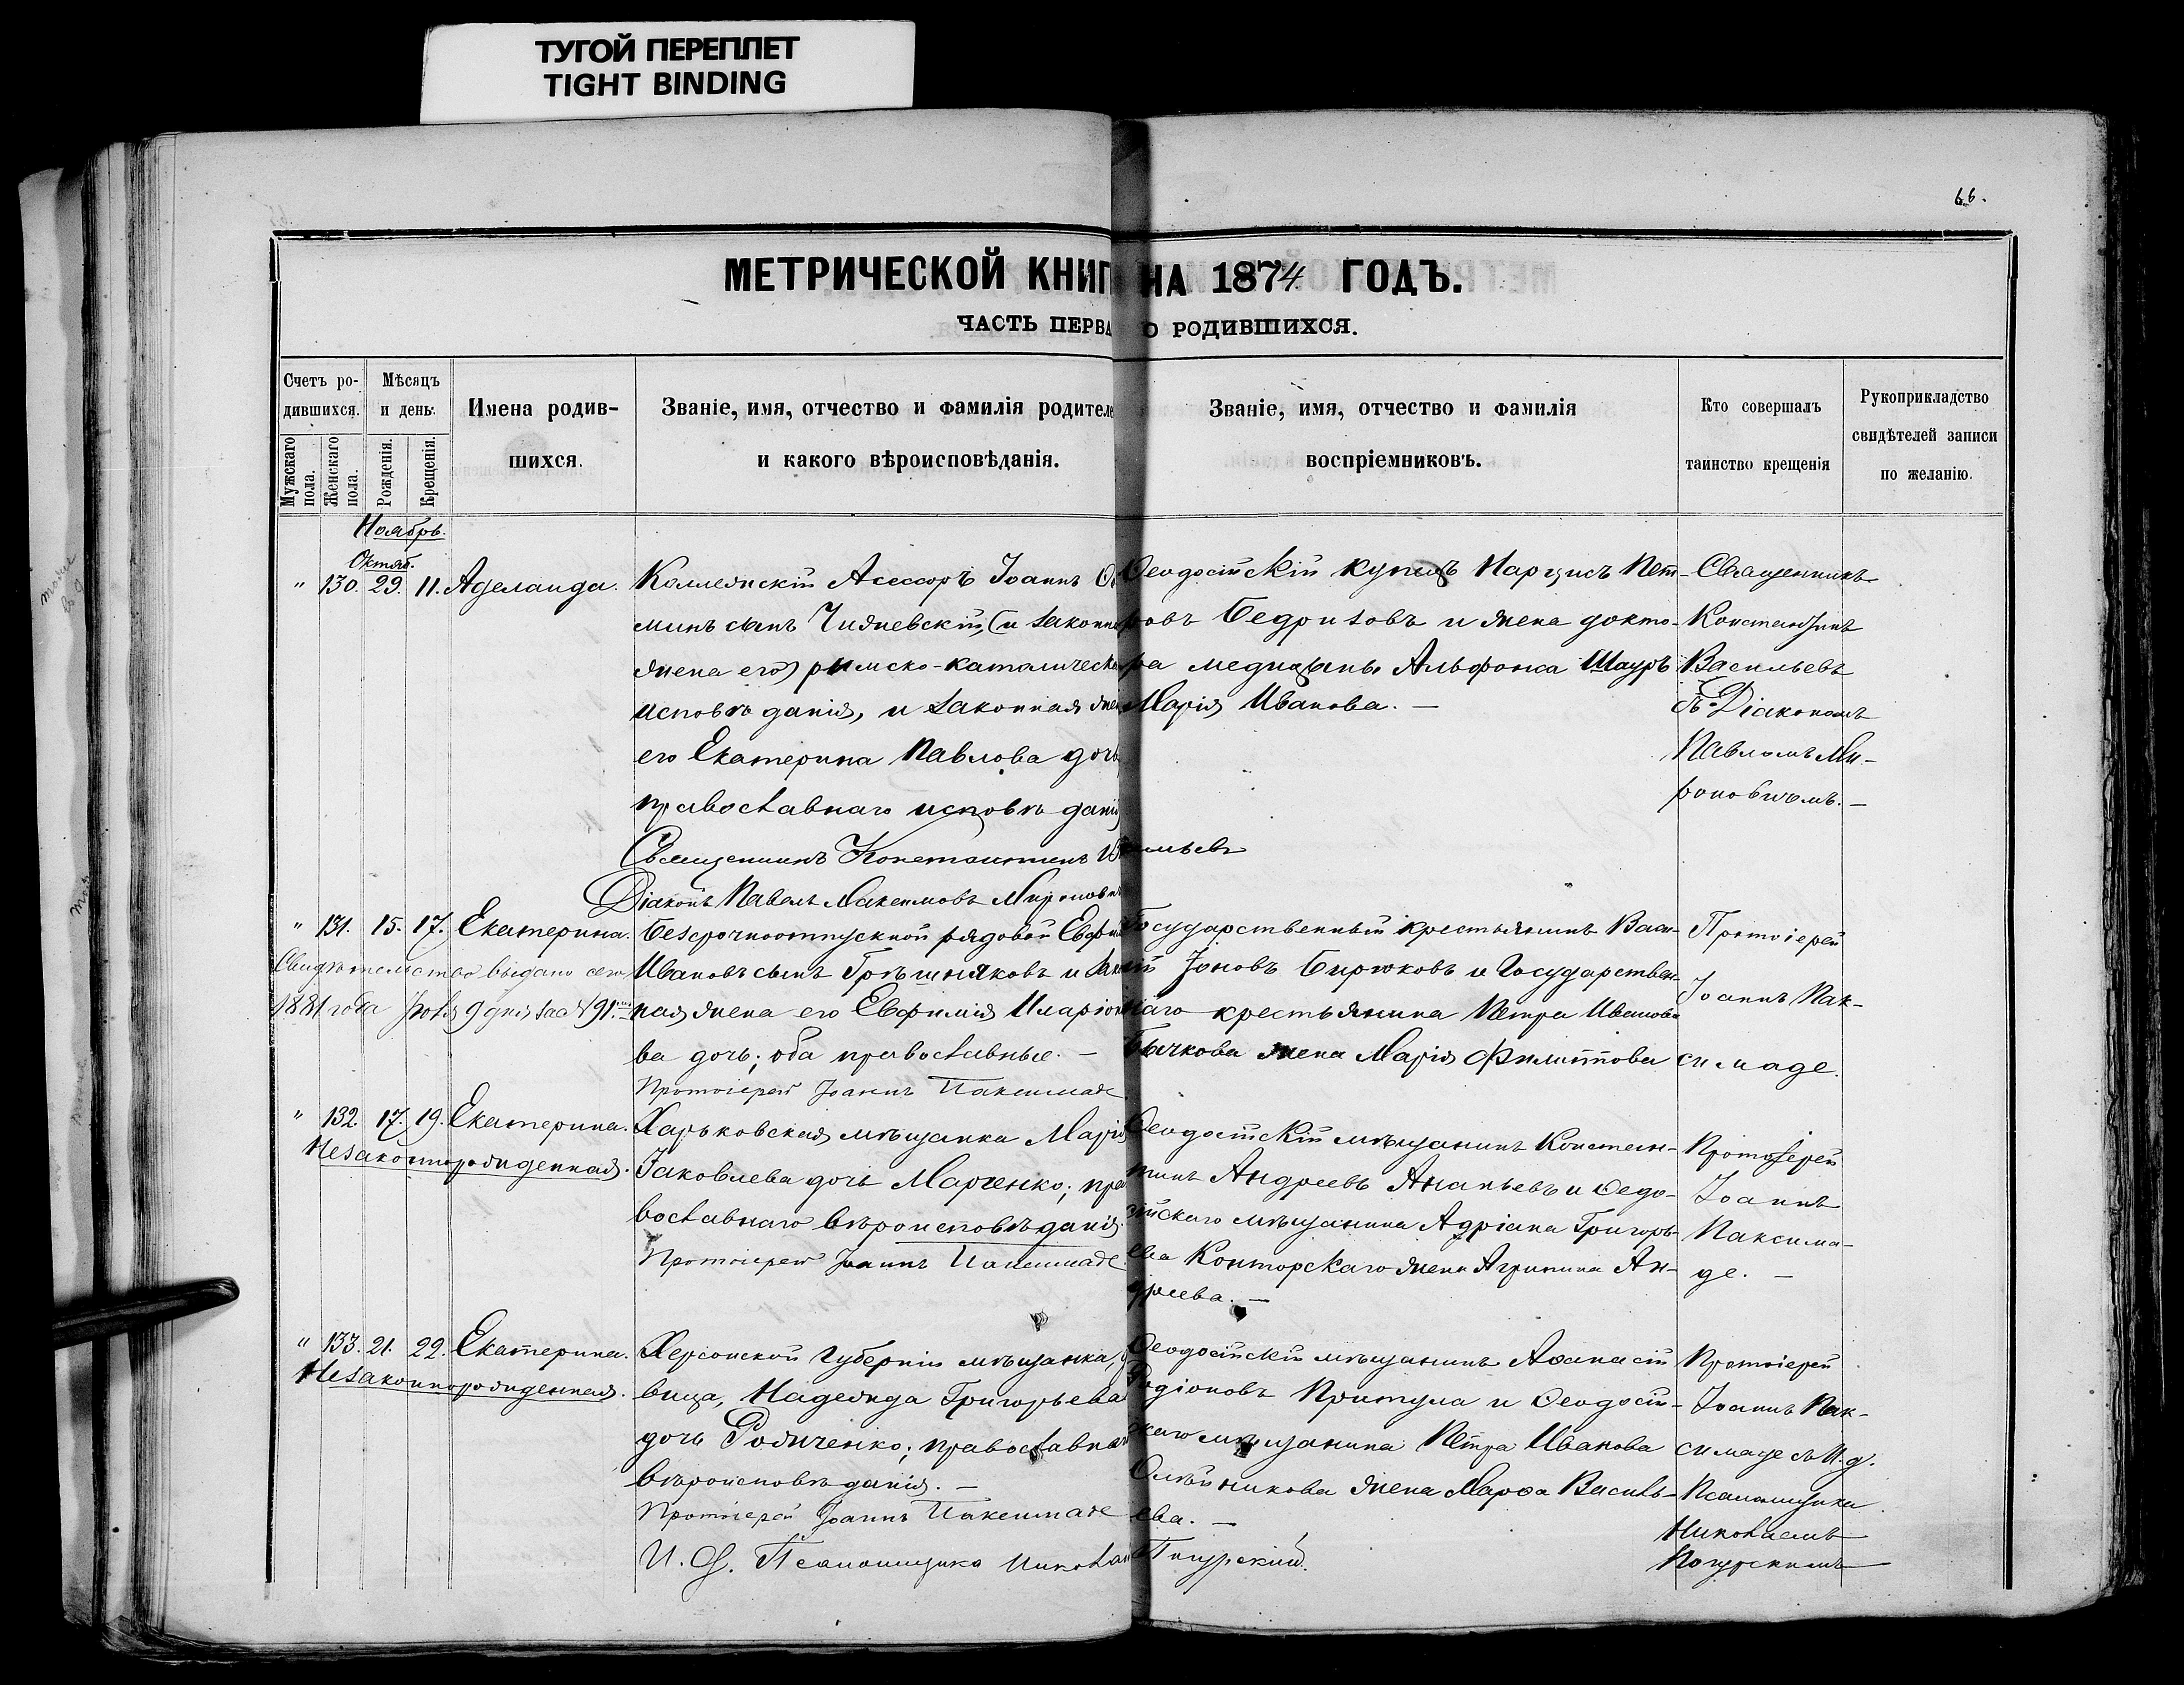 ТУГОЙ ПЕРЕПЛЕТ
TIGHT BINDING
66.
МЕТРИЧЕСКОЙ КНИГ НА 1874 ГОДЪ.
ЧАСТЬ ПЕРВА О РОДИВШИХСЯ.
Счетъ ро-
дившихся.
Мужскаго пола.
Женскаго пола.
Мѣсяцъ
и день.
Рожденія.
Крещенія.
Имена родив-
шихся.
Званіе, имя, отчество и фамилія родителе
и какого вѣроисповѣданія.
Званіе, имя, отчество и фамилія
воспріемниковъ.
Кто совершалъ
таинство крещенія
Рукоприкладство
свидѣтелей записи
по желанію.
Ноябрь.
Октяб.
" 130. 29. 11. Аделаида.
Коллежскій Асессоръ Іоаннъ
минъ сынъ Чижевскій, (и законна
жена его) римско-католическа
исповѣданія, и законная жен
его Екатерина Павлова дочь
православнаго исповѣданія
Ѳеодосійскій купецъ Нарцисъ Пет-
ровъ Бедризовъ и жена докто-
ра медицыны Альфонса Шауръ
Марія Иванова. —
Священникъ
Константинъ
Васильевъ
съ Діакономъ
Павломъ Ми-
роновичемъ. —
Священникъ Константинъ Васильевъ
Діаконъ Павелъ Максимовъ Миронович
" 131. 15. 17. Екатерина.
Свидѣтельство выдано сего
1881 года Іюля 9 дня за № 91.
Безсрочноотпускной рядовой Евфи
Ивановъ сынъ Грѣшняковъ и зако
ная жена его Евфимія Иларіоно
ва дочь; оба православные. —
Протоіерей Іоаннъ Паксимаде
Государственный крестьянинъ Васи-
лій Іоновъ Бирюковъ и Государствен-
наго крестьянина Петра Иванова
Бычкова жена Марія Филиппова
Протоіерей
Іоаннъ Пак-
симаде.
" 132. 17. 19. Екатерина.
Незаконнорожденная.
Харьковская мѣщанка Марія
Іаковлева дочь Марченко; пра
вославнаго вѣроисповѣданія.
Протоіерей Іоаннъ Паксимаде
Ѳеодосійскій мѣщанинъ Констан-
тинъ Андреевъ Ананьевъ и Ѳеодо-
сійскаго мѣщанина Адріана Григорь-
ева Конторскаго жена Агрипина Ан-
дреева. —
Протоіерей
Іоаннъ
Паксима-
де. —
" 133. 21. 22. Екатерина.
Незаконнорожденная.
Херсонской губерніи мѣщанка,
вица, Надежда Григорьева
дочь Родиченко; православнаго
вѣроисповѣданія. —
Протоіерей Іоаннъ Паксимаде
Ѳеодосійскій мѣщанинъ Аѳанасій
Родіоновъ Притула и Ѳеодосій-
скаго мѣщанина Петра Иванова
Олейникова жена Марѳа Василь-
ева. —
Протоіерей
Іоаннъ Пак-
симаде съ И.д.
Псаломщика
Николаемъ
И. д. Псаломщика Никола